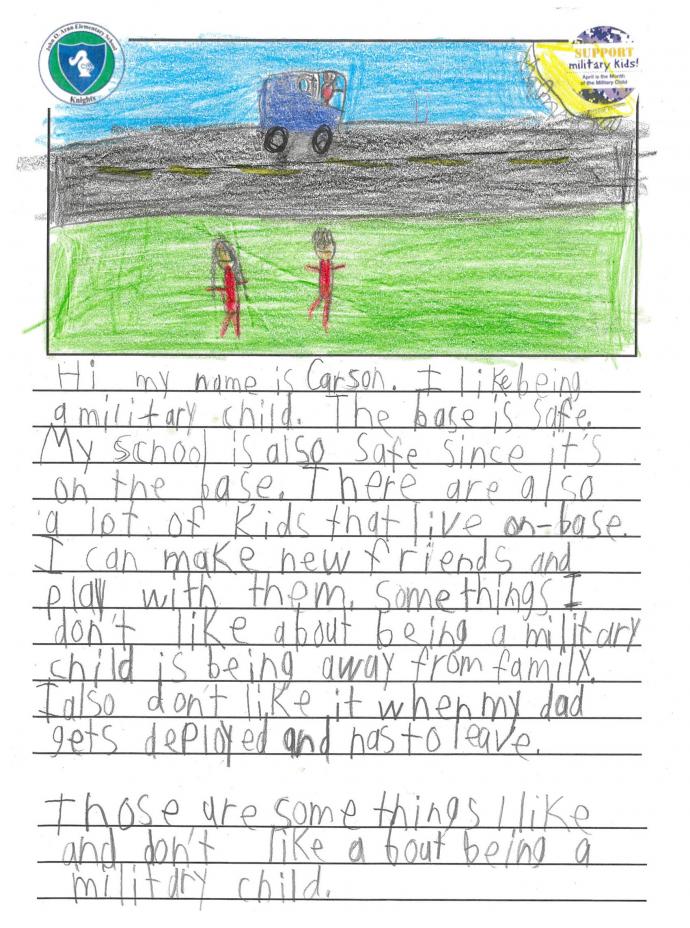 John O. Arnn Elementary School
Knights
SUPPORT
military Kids!
April is the Month
of the Military Child
Hi my name is Carson. I like being
a military child. The base is safe.
My school is also safe since it's
on the base. There are also
a lot of kids that live on-base.
I can make new friends and
play with them. Some things I
don't like about being a military
child is being away from family.
I also don't like it when my dad
gets deployed and has to leave.
Those are some things I like
and don't like about being a
military child.